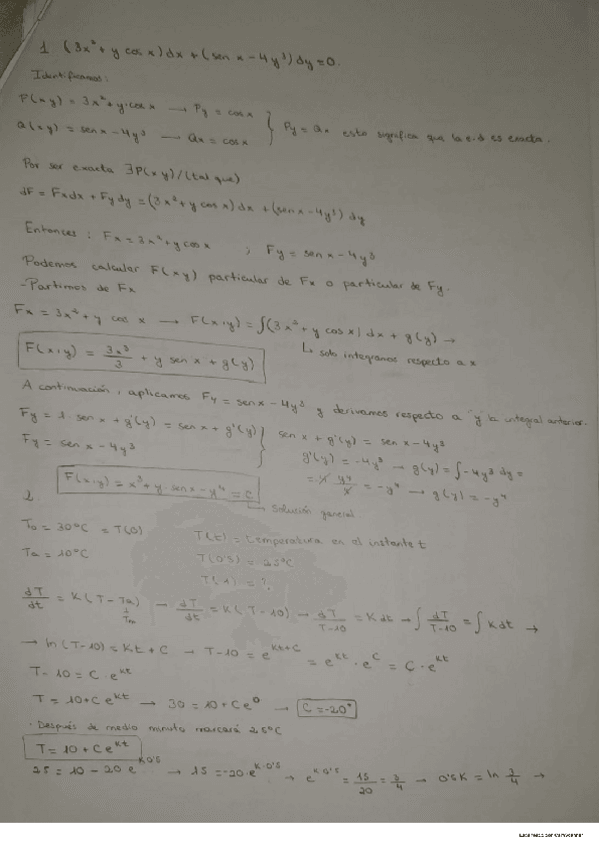 1. (3x² + y cos x) dx + (sen x - 4y³) dy = 0.
Identificamos:
P(xy) = 3x² + y·cos x → Py = cos x
Q(xy) = sen x - 4y³ → Qx = cos x } Py = Qx esto significa que la e.d es exacta.
Por ser exacta ∃F(xy)/(tal que)
dF = Fxdx + Fydy = (3x² + y cos x) dx + (sen x - 4y³) dy
Entonces: Fx = 3x² + y cos x ; Fy = sen x - 4y³
Podemos calcular F(xy) particular de Fx o particular de Fy.
- Partimos de Fx
Fx = 3x² + y cos x → F(x,y) = ∫(3x² + y cos x) dx + g(y) →
↳ solo integramos respecto a x
F(x,y) = 3x³/3 + y sen x + g(y)
A continuación, aplicamos Fy = sen x - 4y³ y derivamos respecto a "y" la integral anterior.
Fy = 1·sen x + g'(y) = sen x + g'(y) } sen x + g'(y) = sen x - 4y³
Fy = sen x - 4y³ g'(y) = -4y³ → g(y) = ∫-4y³ dy =
= -4 y⁴/4 = -y⁴ → g(y) = -y⁴
F(x,y) = x³ + y·sen x - y⁴ = C
↳ Solución general
2.
To = 30ºC = T(0) T(t) = temperatura en el instante t
Ta = 10ºC T(0'5) = 25ºC
T(1) = ?
dT/dt = K(T - Ta) → dT/dt = K(T - 10) → dT/T-10 = Kdt → ∫ dT/T-10 = ∫ Kdt →
→ ln(T-10) = Kt + C → T-10 = e^Kt+C = e^Kt · e^C = C·e^Kt
T - 10 = C·e^Kt
T = 10 + C e^Kt → 30 = 10 + C e⁰ → C = -20
· Después de medio minuto marcará 25ºC
T = 10 + C e^Kt
25 = 10 - 20 e^K·0'5 → 15 = -20·e^K·0'5 → e^K·0'5 = 15/20 = 3/4 → 0'5K = ln 3/4 →